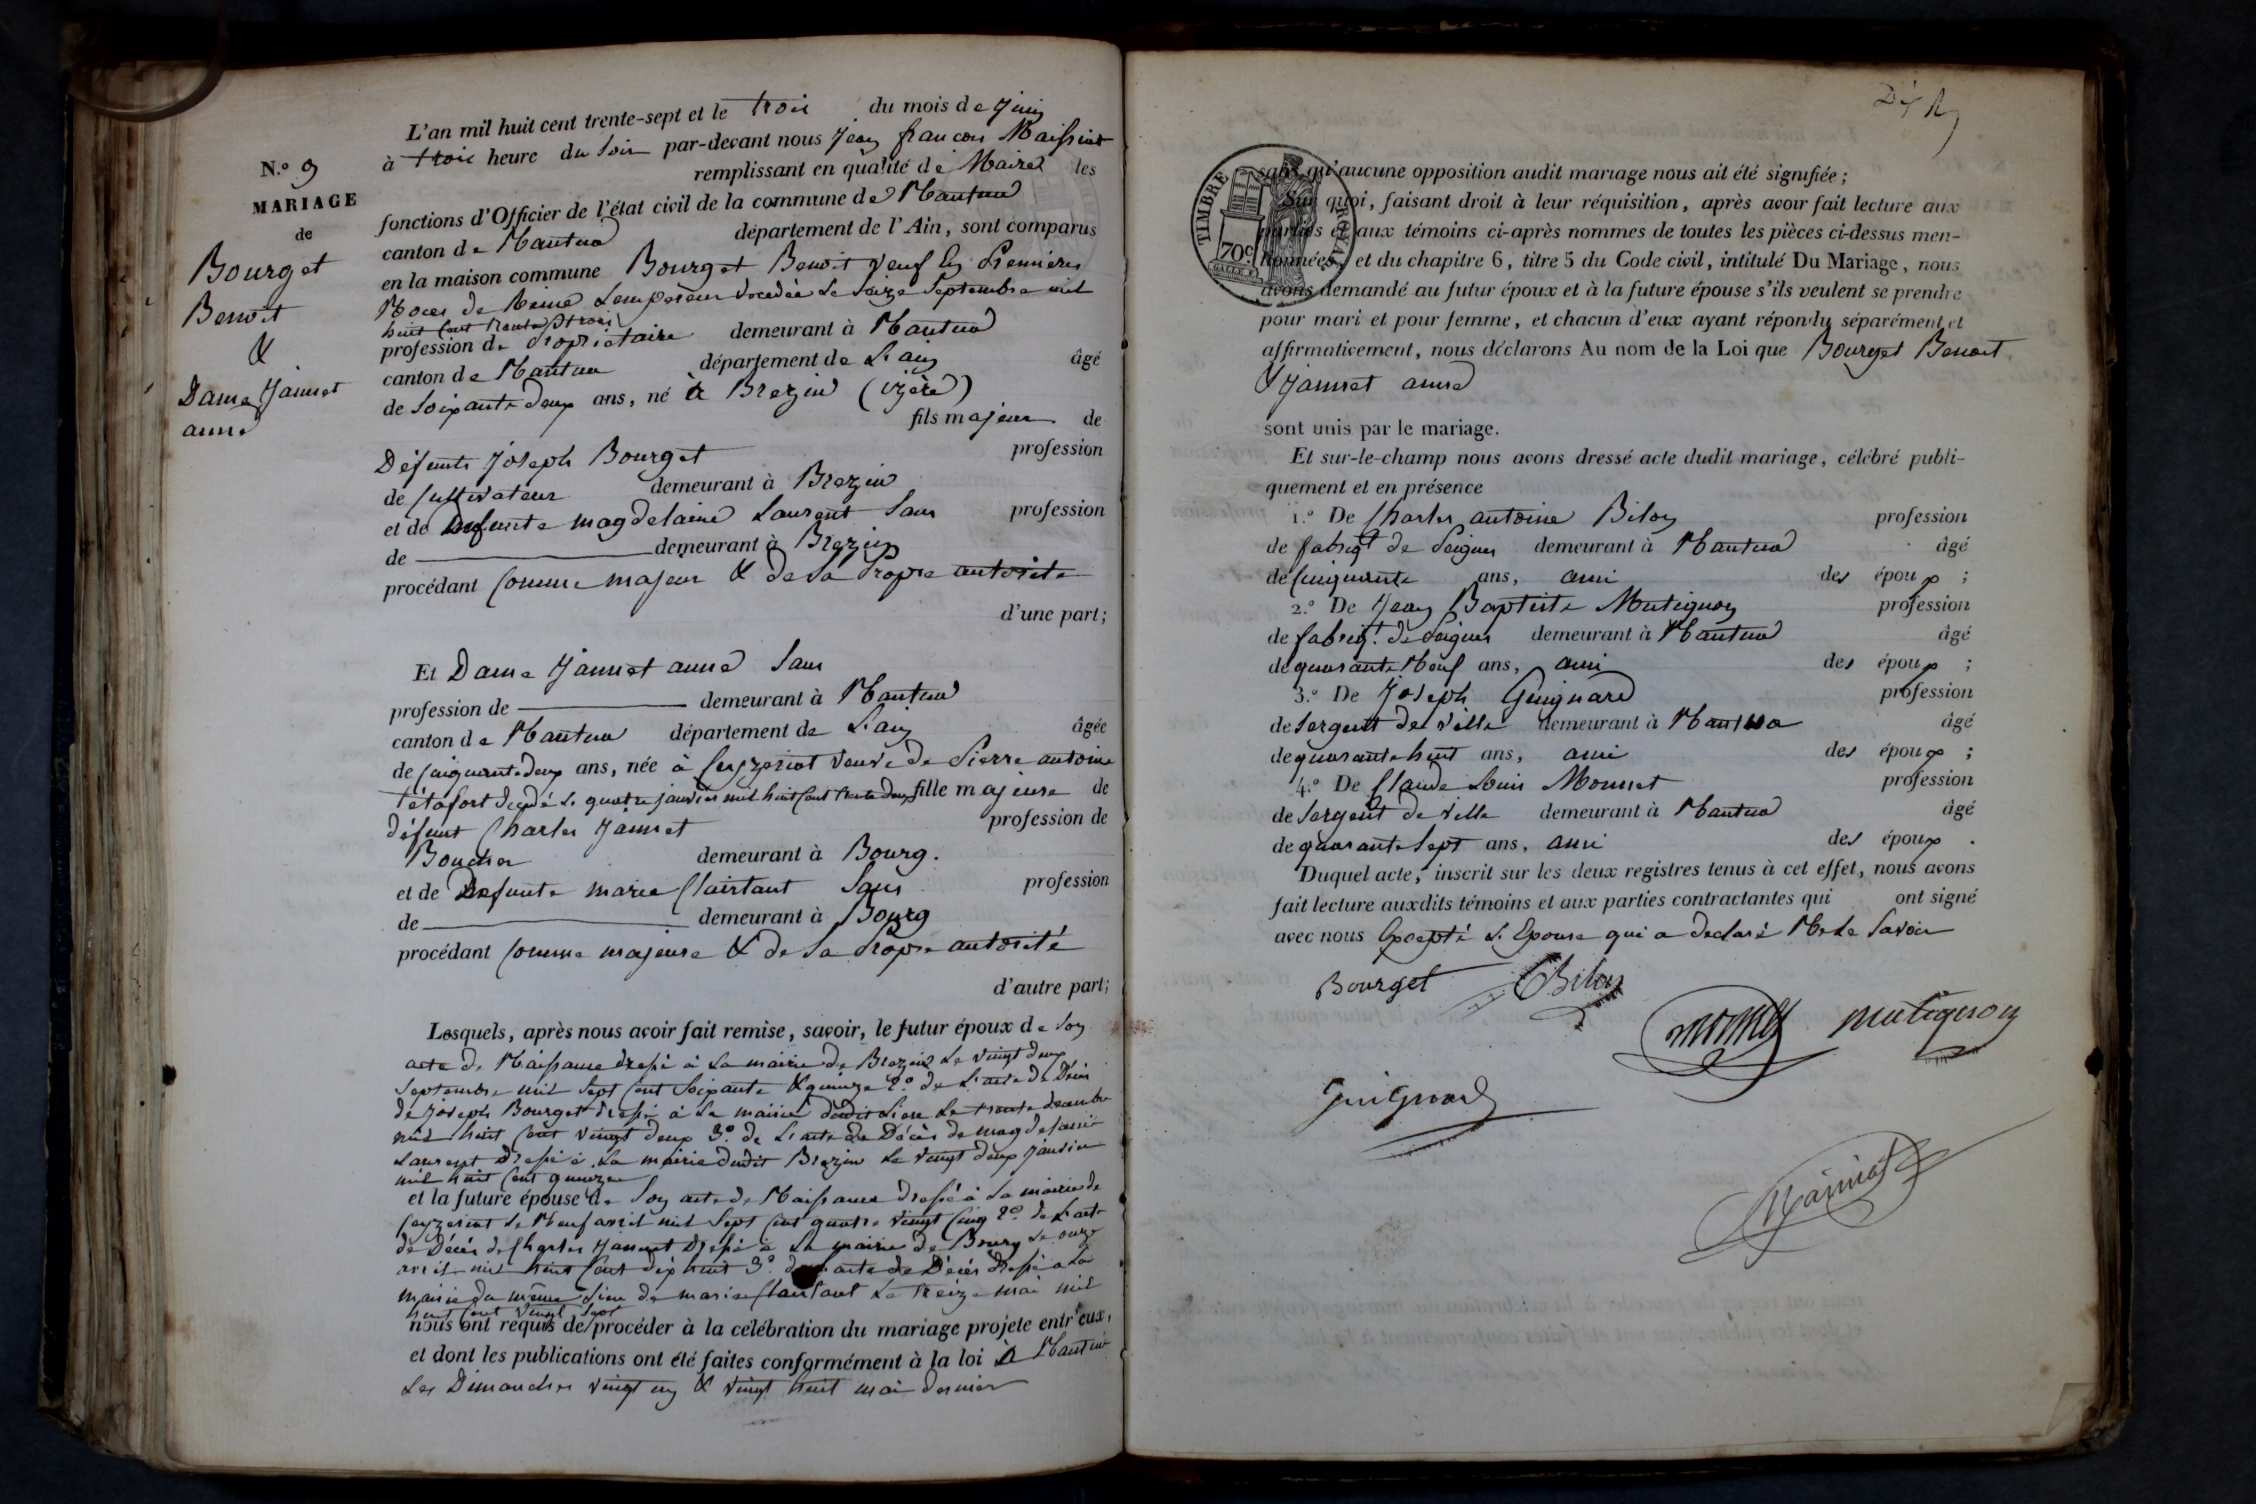 N.º 9
MARIAGE
de
Bourget
Benoit
&
Dame Jannet
anne
L'an mil huit cent trente-sept et le trois du mois de Juin
à trois heure du soir par-devant nous Jean francois Maissiat
remplissant en qualité de Maire les
fonctions d'Officier de l'état civil de la commune de Nantua
canton de Nantua département de l'Ain, sont comparus
en la maison commune Bourget Benoit veuf en Premières
Noces de Reine Lempereur décédée le seize Septembre mil
huit cent trente et trois
profession de Propriétaire demeurant à Nantua
canton de Nantua département de L'ain âgé
de soixante deux ans, né à Brezin (izère)
fils majeur de
Défunts Joseph Bourget profession
de Cultivateur demeurant à Brezin
et de Defunte magdelaine Laurent Sans profession
de demeurant à Brezin
procédant Comme majeur & de sa Propre autorité
d'une part;
Et Dame Jannet anne Sans
profession de demeurant à Nantua
canton de Nantua département de L'ain âgée
de cinquante deux ans, née à Ceyzeriat veuve de Pierre antoine
Tétafort décédé le quatre janvier mil huit cent trente deux fille majeure de
défunt Charles Jannet profession de
Boucher demeurant à Bourg.
et de Defunte marie Clairtant Sans profession
de demeurant à Bourg
procédant Comme majeure & de sa Propre autorité
d'autre part;
Lesquels, après nous avoir fait remise, savoir, le futur époux de son
acte de Naissance dressé à la mairie de Brezin le vingt deux
Septembre mil sept cent soixante & quinze 2.º de l'acte de Décès
de Joseph Bourget dressé à la mairie dudit Lieu le trente decembre
mil huit cent vingt deux 3.º de l'acte de Décès de magdelaine
Laurent dressé à la mairie dudit Brezin le vingt deux janvier
mil huit cent quinze
et la future épouse de son acte de Naissance dressé à la mairie de
Ceyzeriat le Neuf avril mil sept cent quatre vingt cinq 2.º de l'acte
de Décès de Charles Jannet dressé à la mairie de Bourg le onze
avril mil huit cent dix huit 3.º de l'acte de Décès dressé à la
mairie du même Lieu de marie Clairtant le treize mai mil
huit cent vingt sept
nous ont requis de procéder à la célébration du mariage projeté entr'eux,
et dont les publications ont été faites conformément à la loi à Nantua
Les Dimanches vingt un & vingt huit mai dernier
TIMBRE ROYAL
70c
sans qu'aucune opposition audit mariage nous ait été signifiée;
Sur quoi, faisant droit à leur réquisition, après avoir fait lecture aux
parties et aux témoins ci-après nommés de toutes les pièces ci-dessus men-
tionnées, et du chapitre 6, titre 5 du Code civil, intitulé Du Mariage, nous
avons demandé au futur époux et à la future épouse s'ils veulent se prendre
pour mari et pour femme, et chacun d'eux ayant répondu séparément et
affirmativement, nous déclarons Au nom de la Loi que Bourget Benoit
& Jannet anne
sont unis par le mariage.
Et sur-le-champ nous avons dressé acte dudit mariage, célébré publi-
quement et en présence
1.º De Charles antoine Bilon profession
de fabriqt de Peignes demeurant à Nantua âgé
de cinquante ans, ami des époux;
2.º De Jean Baptiste Mutignon profession
de fabriqt de Peignes demeurant à Nantua âgé
de quarante Neuf ans, ami des époux;
3.º De Joseph Guignard profession
de Sergent de ville demeurant à Nantua âgé
de quarante huit ans, ami des époux;
4.º De Claude Louis Monnet profession
de Sergent de ville demeurant à Nantua âgé
de quarante sept ans, ami des époux.
Duquel acte, inscrit sur les deux registres tenus à cet effet, nous avons
fait lecture auxdits témoins et aux parties contractantes qui ont signé
avec nous Excepté L'Epouse qui a déclaré Ne le Savoir
Bourget CBilon
monnet mutignon
Guignard
Maissiat